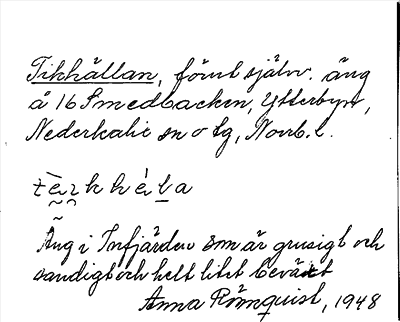 Tikhällan, förut självst. äng
å 16 Smedbacken, Ytterbyn,
Nederkalix sn o tg, Norrb. l.
Äng i Infjärden som är grusigt och
sandigt och helt litet bevä&t
Anna Rönnquist, 1948